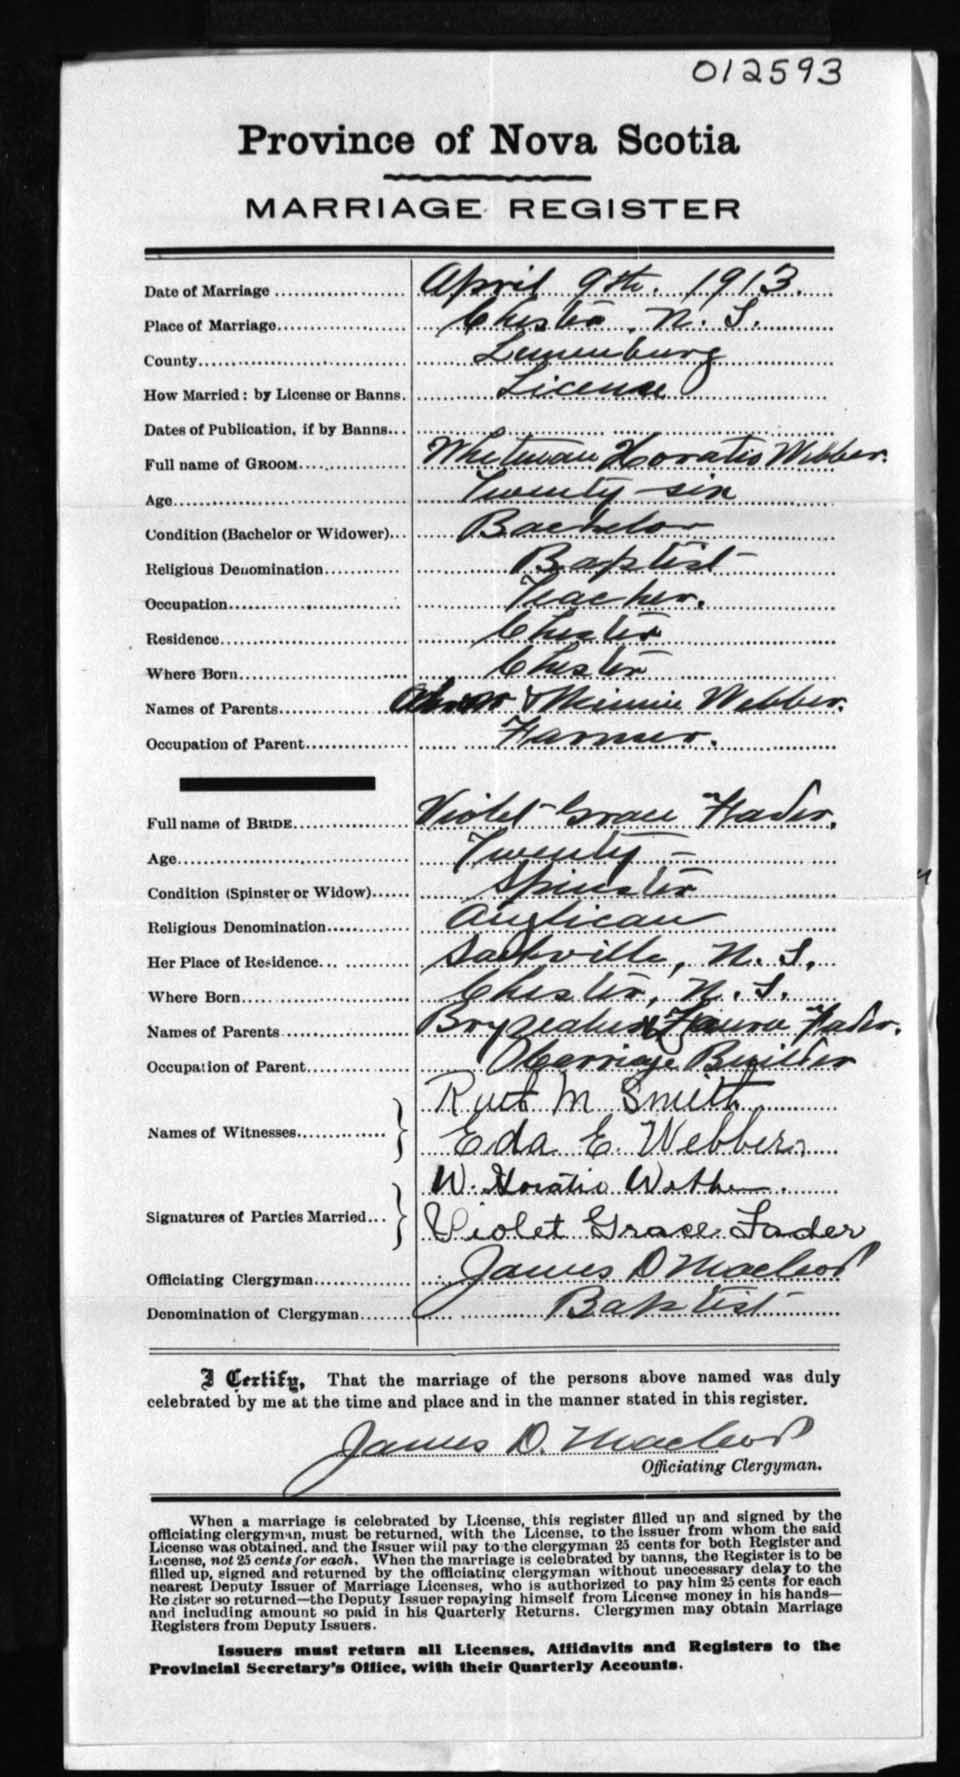 012593
Province of Nova Scotia
MARRIAGE REGISTER
Date of Marriage ... April 9th. 1913.
Place of Marriage ... Chester, N. S.
County ... Lunenburg
How Married: by License or Banns. License
Dates of Publication, if by Banns...
Full name of GROOM ... Whitman Horatio Webber.
Age ... Twenty-six
Condition (Bachelor or Widower)... Bachelor
Religious Denomination ... Baptist
Occupation ... Teacher.
Residence ... Chester
Where Born ... Chester
Names of Parents ... & Minnie Webber.
Occupation of Parent ... Farmer.
Full name of BRIDE ... Violet Grace Fader.
Age ... Twenty -
Condition (Spinster or Widow) ... Spinster
Religious Denomination ... Anglican
Her Place of Residence ... Sackville, N. S.
Where Born ... Chester, N. S.
Names of Parents ... & Laura Fader.
Occupation of Parent ... Carriage Builder
Names of Witnesses ... } Ruth M Smith
Eda E. Webber
Signatures of Parties Married ... } W. Horatio Webber.
Violet Grace Fader
Officiating Clergyman ... James D Macleod
Denomination of Clergyman ... Baptist
I Certify, That the marriage of the persons above named was duly
celebrated by me at the time and place and in the manner stated in this register.
James D. Macleod
Officiating Clergyman.
When a marriage is celebrated by License, this register filled up and signed by the
officiating clergyman, must be returned, with the License, to the issuer from whom the said
License was obtained, and the Issuer will pay to the clergyman 25 cents for both Register and
License, not 25 cents for each. When the marriage is celebrated by banns, the Register is to be
filled up, signed and returned by the officiating clergyman without unnecessary delay to the
nearest Deputy Issuer of Marriage Licenses, who is authorized to pay him 25 cents for each
Register so returned—the Deputy Issuer repaying himself from License money in his hands—
and including amount so paid in his Quarterly Returns. Clergymen may obtain Marriage
Registers from Deputy Issuers.
Issuers must return all Licenses, Affidavits and Registers to the
Provincial Secretary's Office, with their Quarterly Accounts.